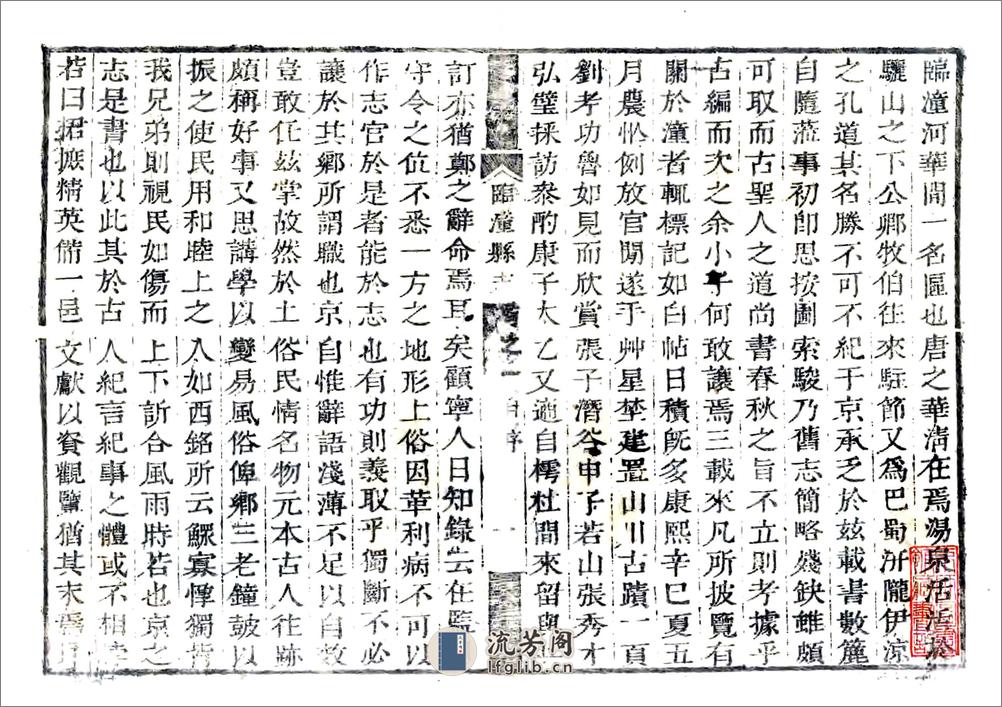 臨潼河華間一名區也唐之華清在焉湯泉活活於
驪山之下公卿牧伯往來駐節又為巴蜀汧隴伊涼
之孔道其名勝不可不紀于京承乏於茲載書數簏
自隨蒞事初卽思按圖索駿乃舊志簡略殘缺雖頗
可取而古聖人之道尚書春秋之旨不立則考據乎
古編而次之余小子何敢讓焉三載來凡所披覽有
關於潼者輒標記如白帖日積旣多康熙辛巳夏五
月農忙例放官閒遂手艸星埜建置山川古蹟一頁
劉孝功魯如見而欣賞張子潛谷申子若山張秀才
弘璧採訪參酌康子太乙又適自樗杜間來留與
臨潼縣志
卷之
自序
一
訂亦猶鄭之辭命焉耳矣顧寧人日知錄云在監
守令之位不悉一方之地形土俗因革利病不可以
作志官於是者能於志也有功則義取乎獨斷不必
讓於其鄉所謂職也京自惟辭語淺薄不足以自敘
豈敢任茲掌故然於土俗民情名物元本古人往跡
頗稱好事又思講學以變易風俗俾鄉三老鐘鼓以
振之使民用和睦上之人如西銘所云鰥寡惸獨皆
我兄弟則視民如傷而上下訢合風雨時若也京之
志是書也以此其於古人紀言紀事之體或不相
若曰捃摭精英備一邑文獻以資觀覽猶其末焉
流芳阁
lfglib.cn